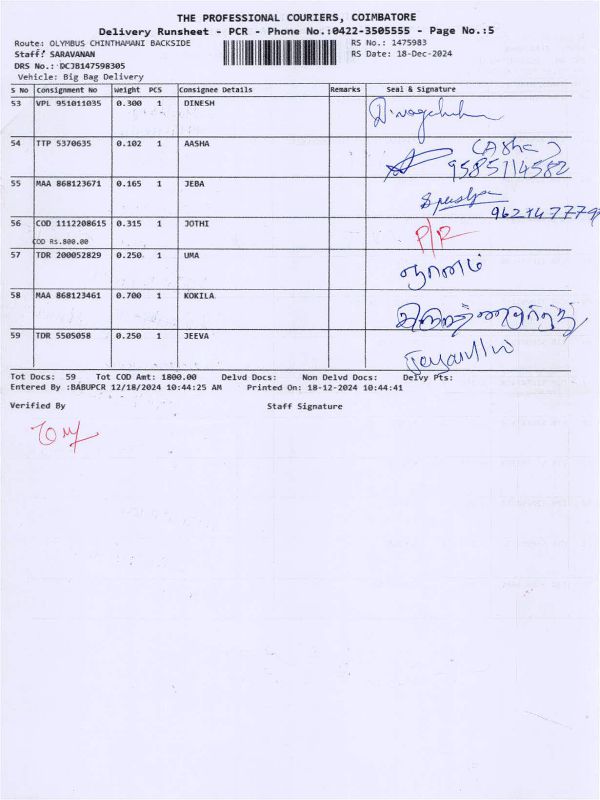 THE PROFESSIONAL COURIERS, COIMBATORE
Delivery Runsheet - PCR - Phone No.:0422-3505555 - Page No.:5
Route: OLYMBUS CHINTHAMANI BACKSIDE RS No.: 1475983
Staff: SARAVANAN RS Date: 18-Dec-2024
DRS No.: DCJB147598305
Vehicle: Big Bag Delivery
S No Consignment No Weight PCS Consignee Details Remarks Seal & Signature
53 VPL 951011035 0.300 1 DINESH
54 TTP 5370635 0.102 1 AASHA (Asha)
9585114582
55 MAA 868123671 0.165 1 JEBA
56 COD 1112208615 0.315 1 JOTHI P/R
COD Rs.800.00
57 TDR 200052829 0.250 1 UMA
58 MAA 868123461 0.700 1 KOKILA
59 TDR 5505058 0.250 1 JEEVA
Tot Docs: 59 Tot COD Amt: 1800.00 Delvd Docs: Non Delvd Docs: Delvy Pts:
Entered By :BABUPCR 12/18/2024 10:44:25 AM Printed On: 18-12-2024 10:44:41
Verified By Staff Signature